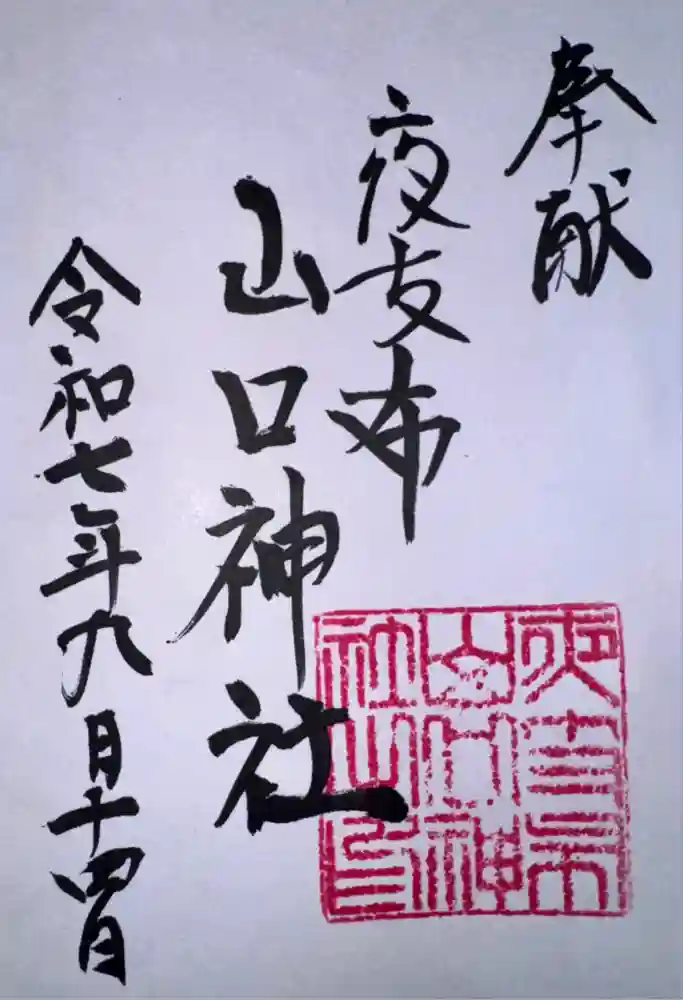 奉献
夜支布
山口神社
令和七年九月十四日
夜支布
山口神
社之印